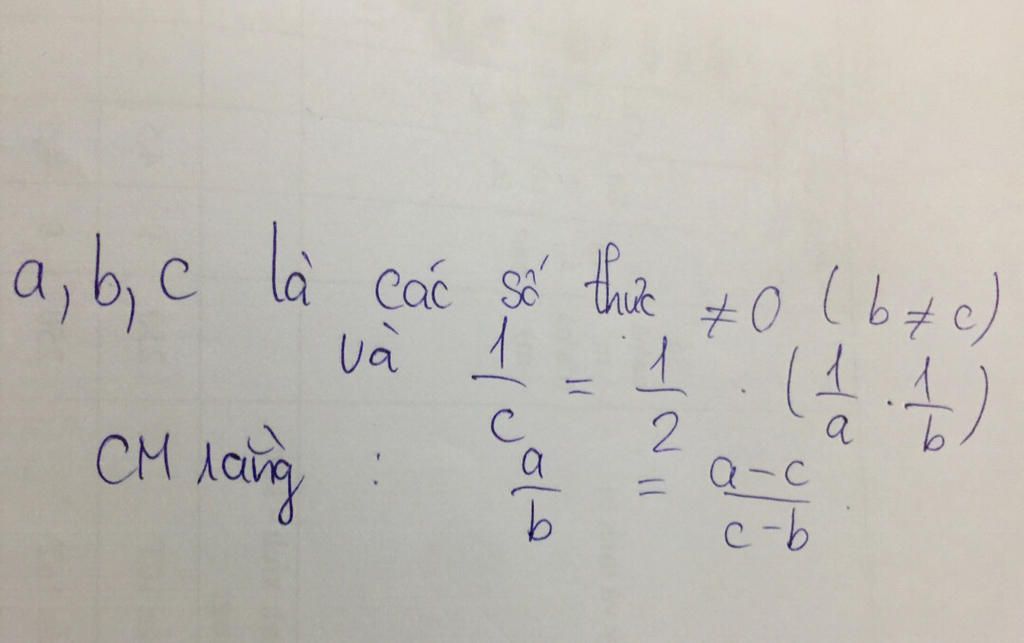 a, b, c là các số thực ≠ 0 ( b ≠ c)
và 1/c = 1/2 . (1/a . 1/b)
CM rằng : a/b = a-c/c-b